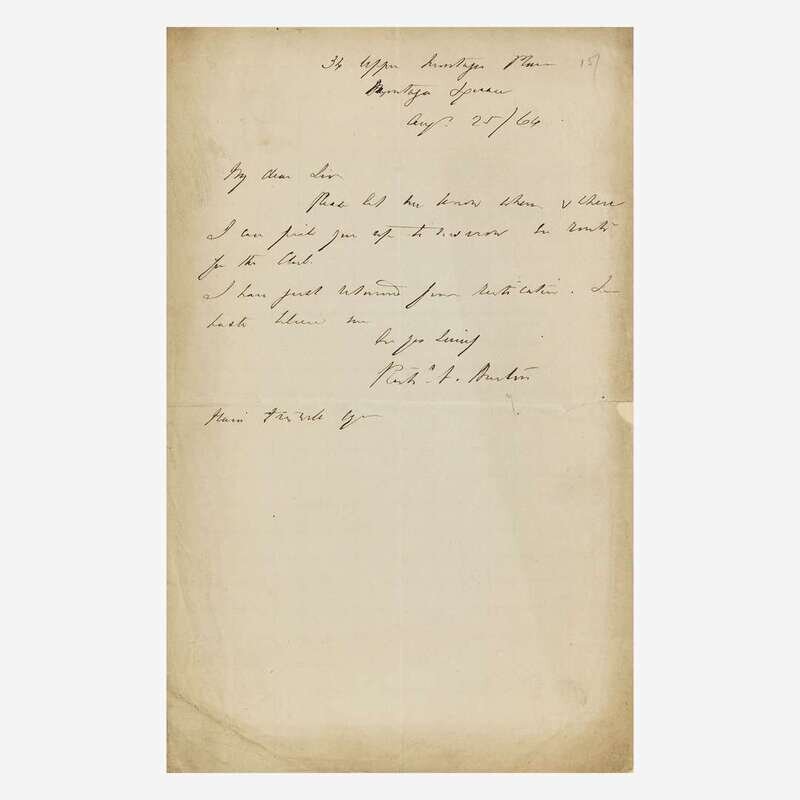 34 Upper Montagu Place 151
Montagu Square
Aug. 25/64
My dear Sir
Please let me know when & where
I can pick you up to-morrow en route
for the Club.
I have just returned from rustication. In
haste believe me
Ever yrs sincy
Richd. F. Burton
Esqre